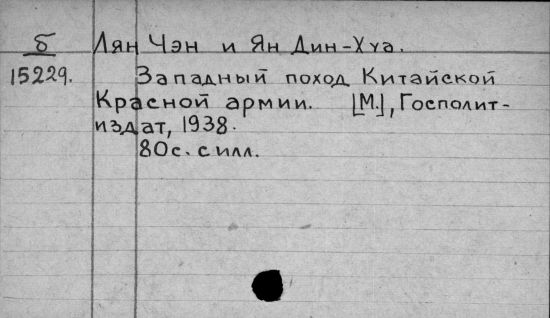 б Лян Чэн и Ян Дин-Хуа.
15229. Западный поход Китайской
Красной армии. [М.], Госполит-
издат, 1938.
80с. с илл.